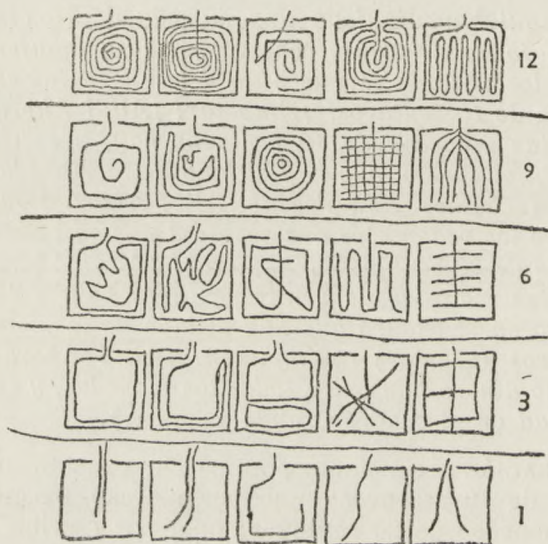 12
9
6
3
1